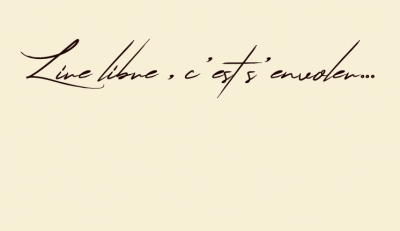 Lire libre , c'est s'envoler...